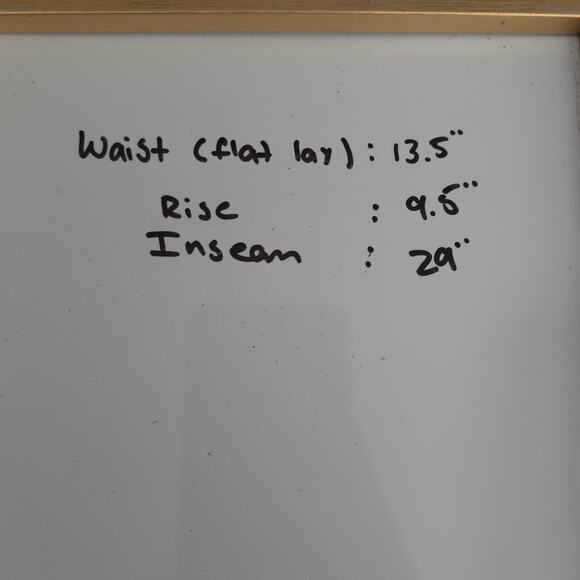 Waist (flat lay) : 13.5"
Rise : 9.5"
Inseam : 29"